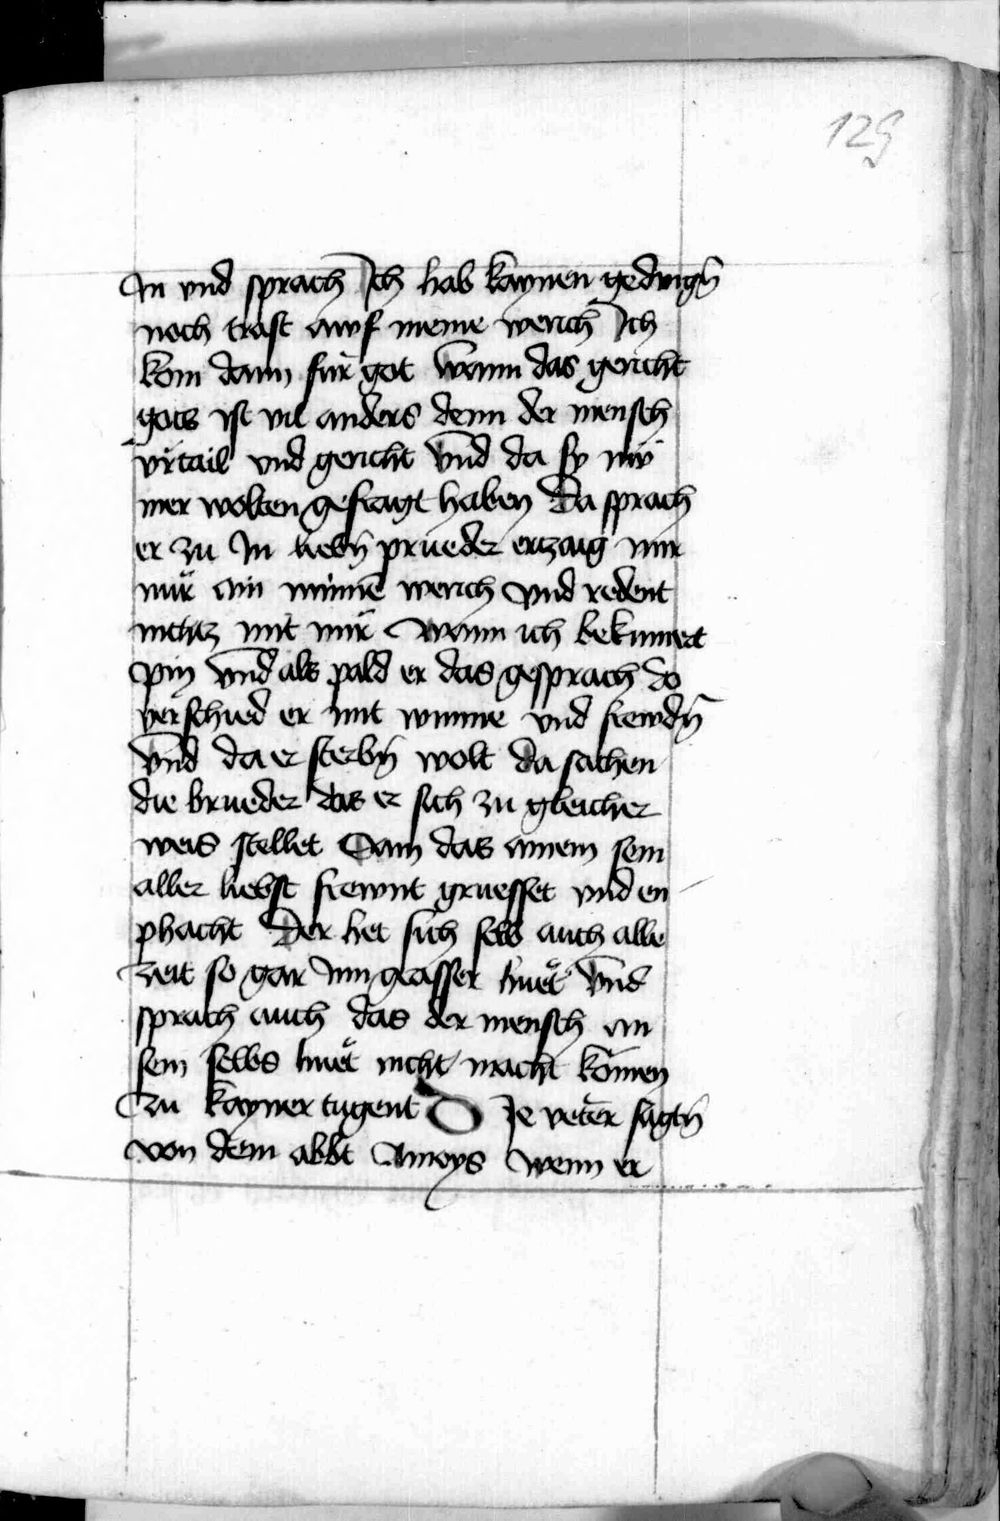 129
In vnd sprach Ich hab kaynen gedingn̄
noch trost awf meine werich Ich
kom dann für got Wann das gericht
gots ist vil anders denn der mensch
vrtail vnd gericht Vnd da sy nür
mer wolten gefragt haben Da sprach
er zu In liebn̄ prueder ertzaig mir
nür ain minne werich vnd redent
nichtz mit mir Wann ich bekumert
pin Vnd als pald er das gesprach do
verschied er mit wunne vnd frewdn̄
Vnd da er sterbn̄ wolt da sachen
die brueder das er sich zu gleicher
weis stellet Sam das ainem sein
aller liebst frewnt gruesset vnd en
phacht Der het sich selb auch alle
zeit so gar in grasser huet Vnd
sprach auch das der mensch an
sein selbs huet nicht macht komen
zu kayner tugent D Ie veter sagtn̄
von dem abbt Amoys Wenn er